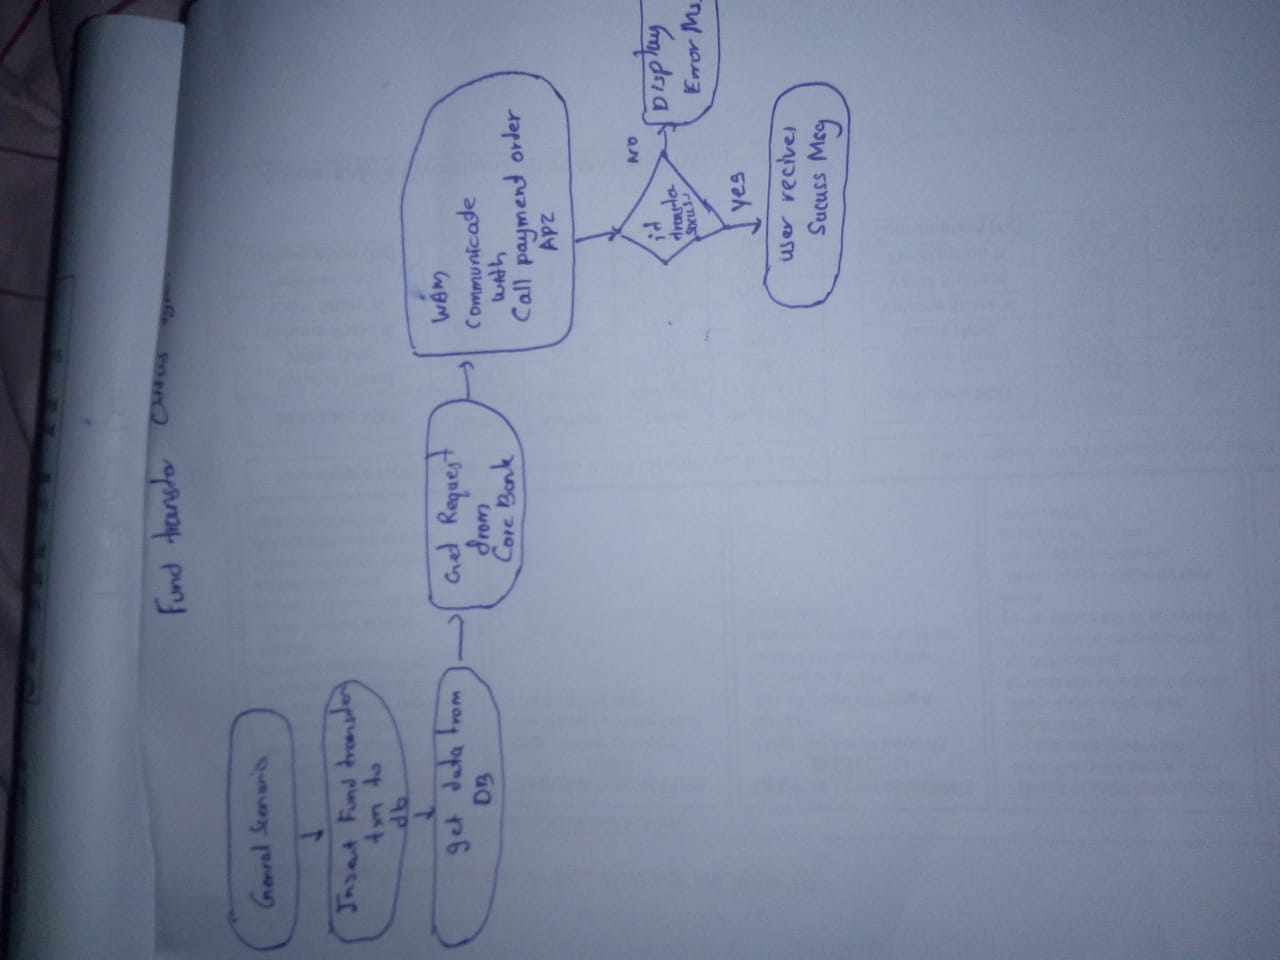 Fund transfer
General Scenario
Insert Fund transfer
txn to
db
get data from
DB
Get Request
from
Core Bank
communicate
with
Call payment order
API
if
transfer
No
Yes
Display
Error Ms
User recives
Sucuss Msg